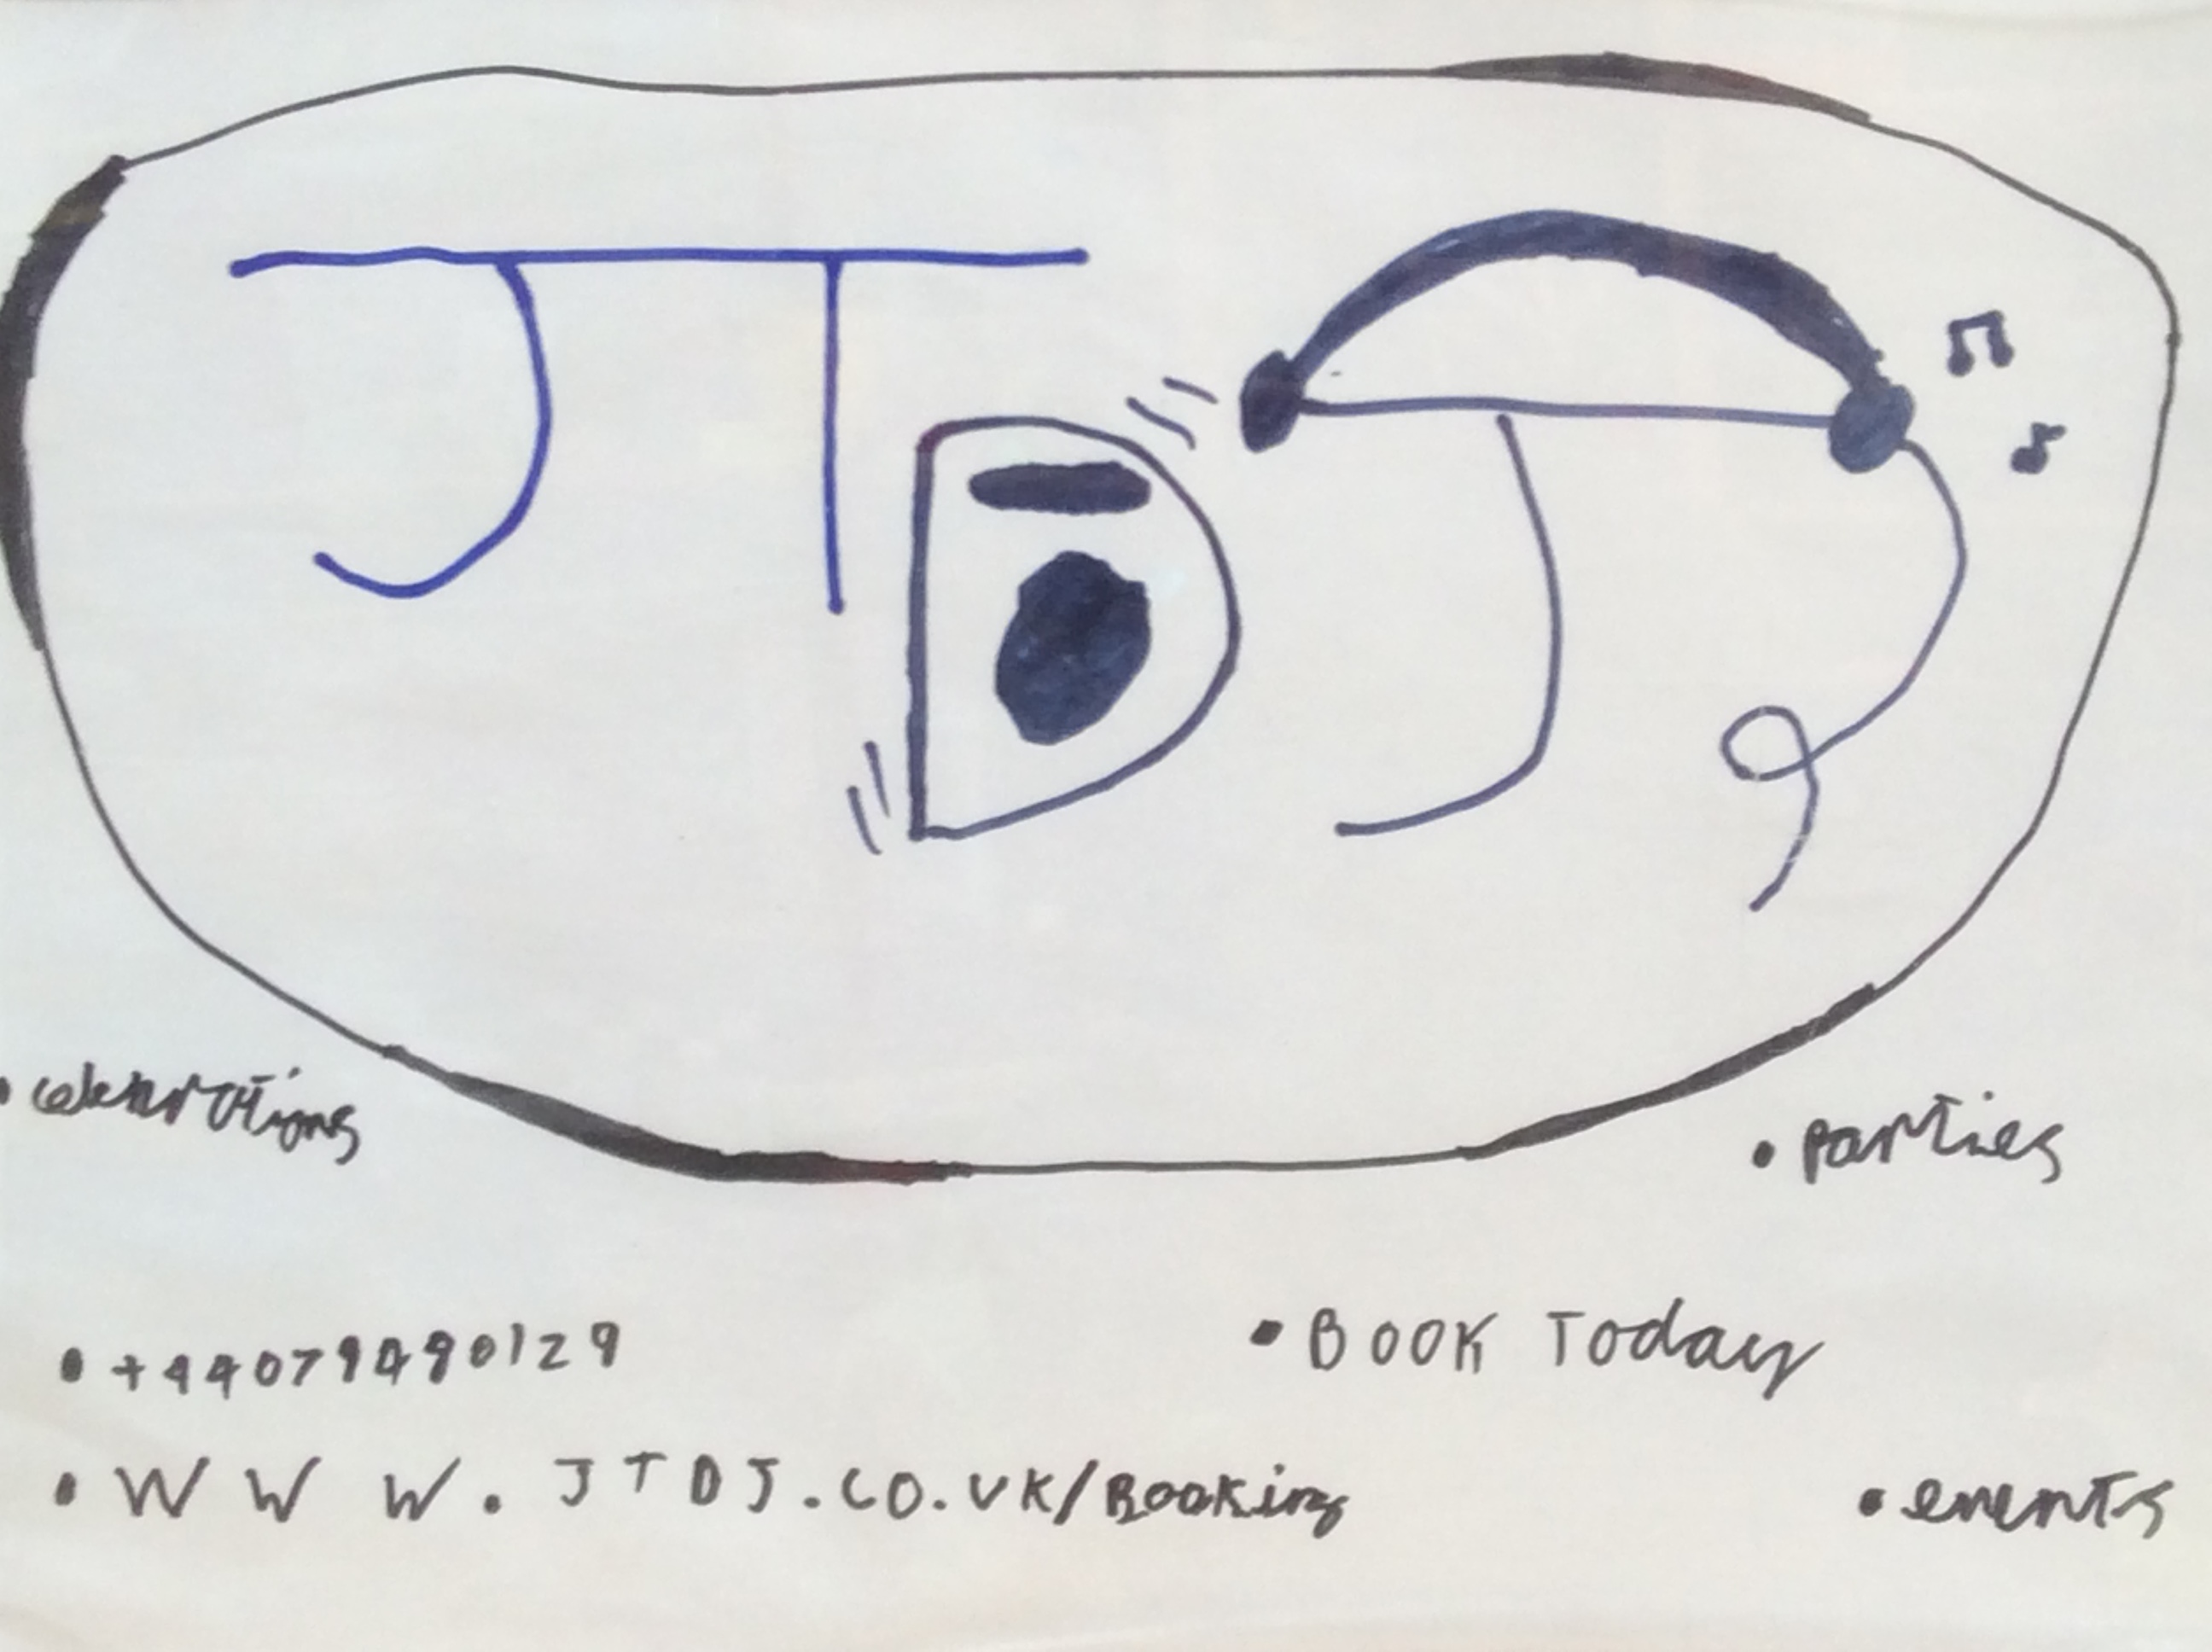 JT
DJ
• celebrations
• parties
• +44079490129
• BOOK Today
• WWW.JTDJ.CO.UK/Booking
• events